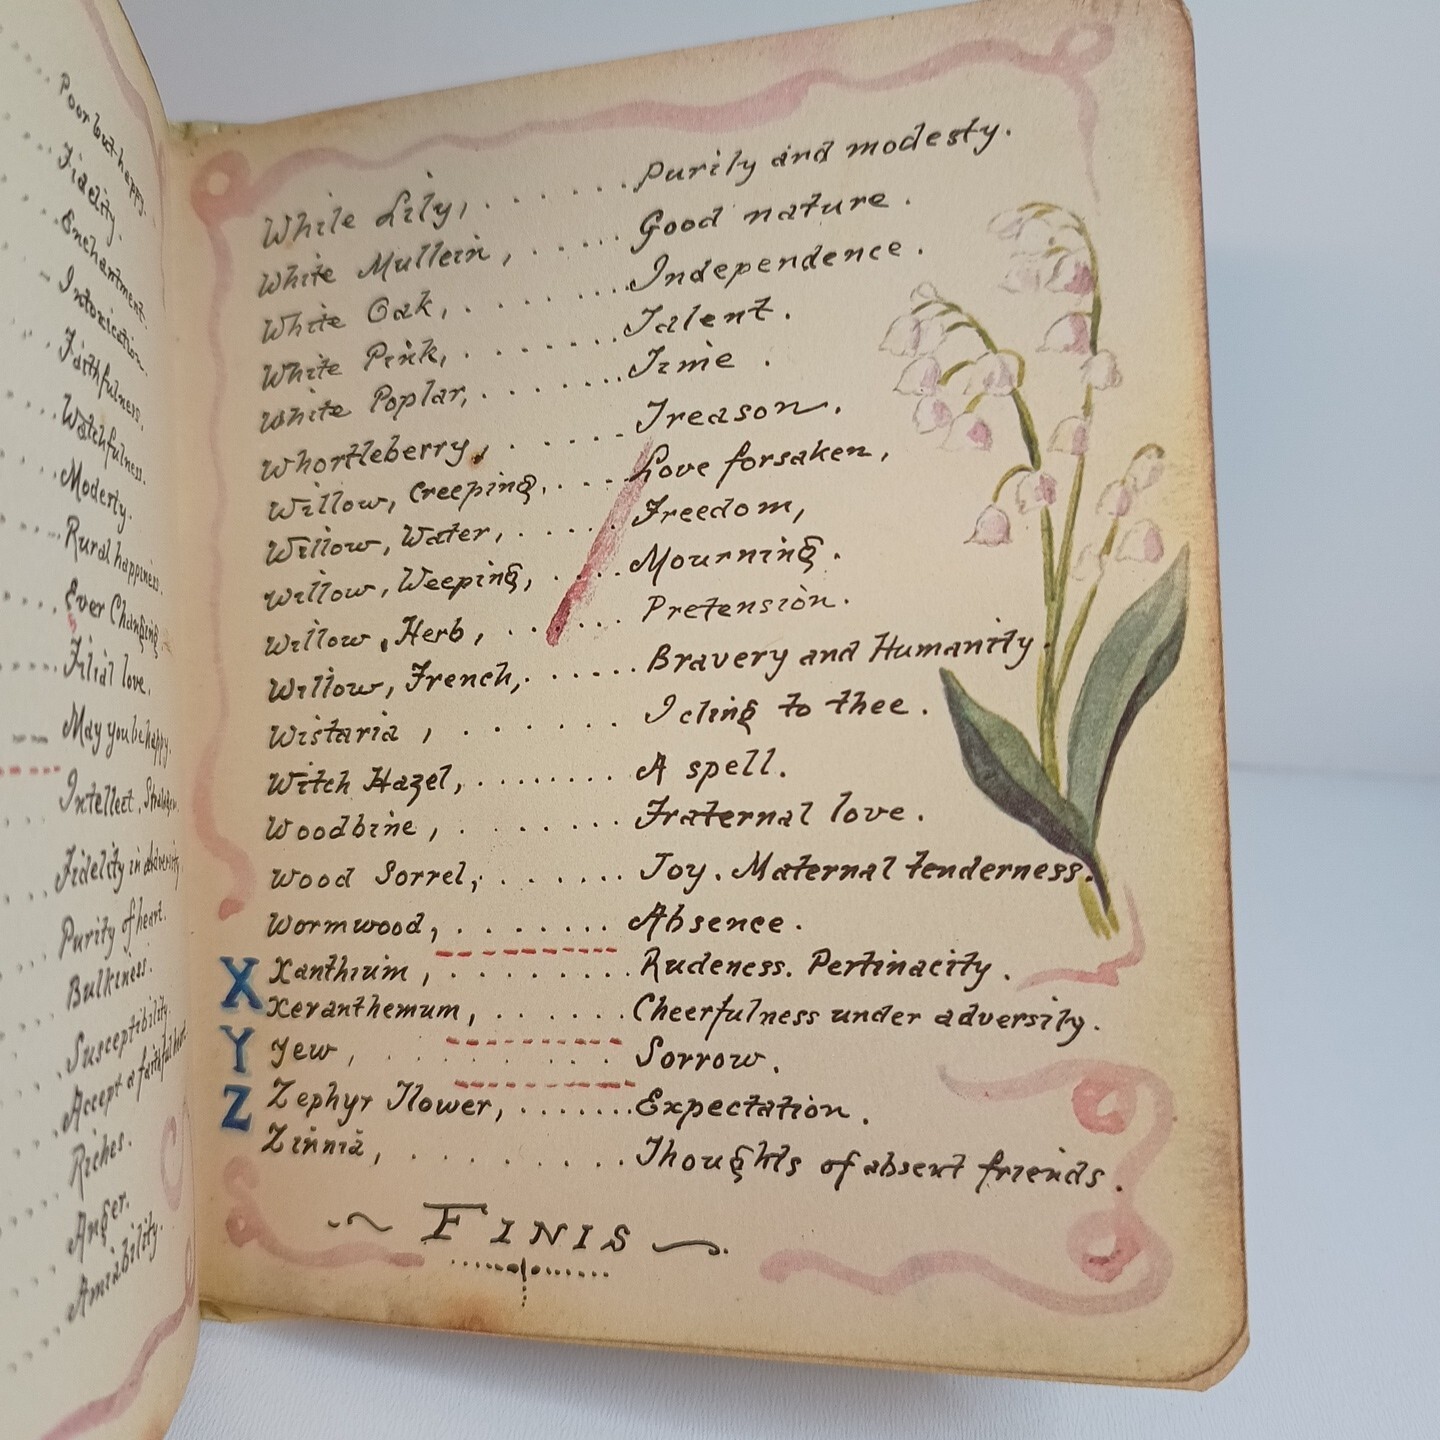 Poor but happy.
Fidelity.
Enchantment.
Intoxication.
Faithfulness.
Watchfulness.
Modesty.
Rural happiness.
Ever Changing
Filial love.
May you be happy.
Intellect,
Fidelity in adversity
Purity of heart.
Bulkiness.
Susceptibility.
Accept a faithful heart.
Riches.
Anger.
Amiability.
White Lily, . . . . . . . Purity and modesty.
White Mullein, . . . . . . Good nature.
White Oak, . . . . . . . . Independence.
White Pink, . . . . . . . . Talent.
White Poplar, . . . . . . . Time.
Whortleberry, . . . . . . Treason.
Willow, Creeping, . . . . . Love forsaken,
Willow, Water, . . . . . . Freedom,
Willow, Weeping, . . . . Mourning.
Willow, Herb, . . . . . . Pretension.
Willow, French, . . . . . . Bravery and Humanity.
Wistaria, . . . . . . . I cling to thee.
Witch Hazel, . . . . . . . . A spell.
Woodbine, . . . . . . . . Fraternal love.
Wood Sorrel, . . . . . . . Joy. Maternal tenderness.
Wormwood, . . . . . . . . Absence.
X Xanthium, . . . . . . . . Rudeness. Pertinacity.
Xeranthemum, . . . . . . Cheerfulness under adversity.
Y Yew, . . . . . . . . Sorrow.
Z Zephyr Flower, . . . . . . . Expectation.
Zinnia, . . . . . . . . . Thoughts of absent friends.
~ FINIS ~